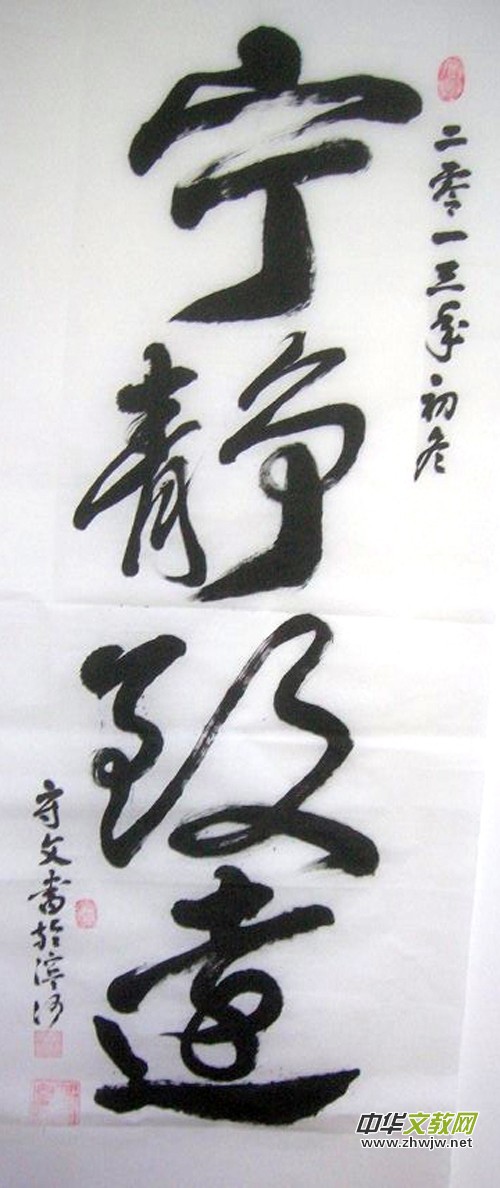 二零一三年初冬
宁静致远
守文書於滨河
中华文教网
www.zhwjw.net